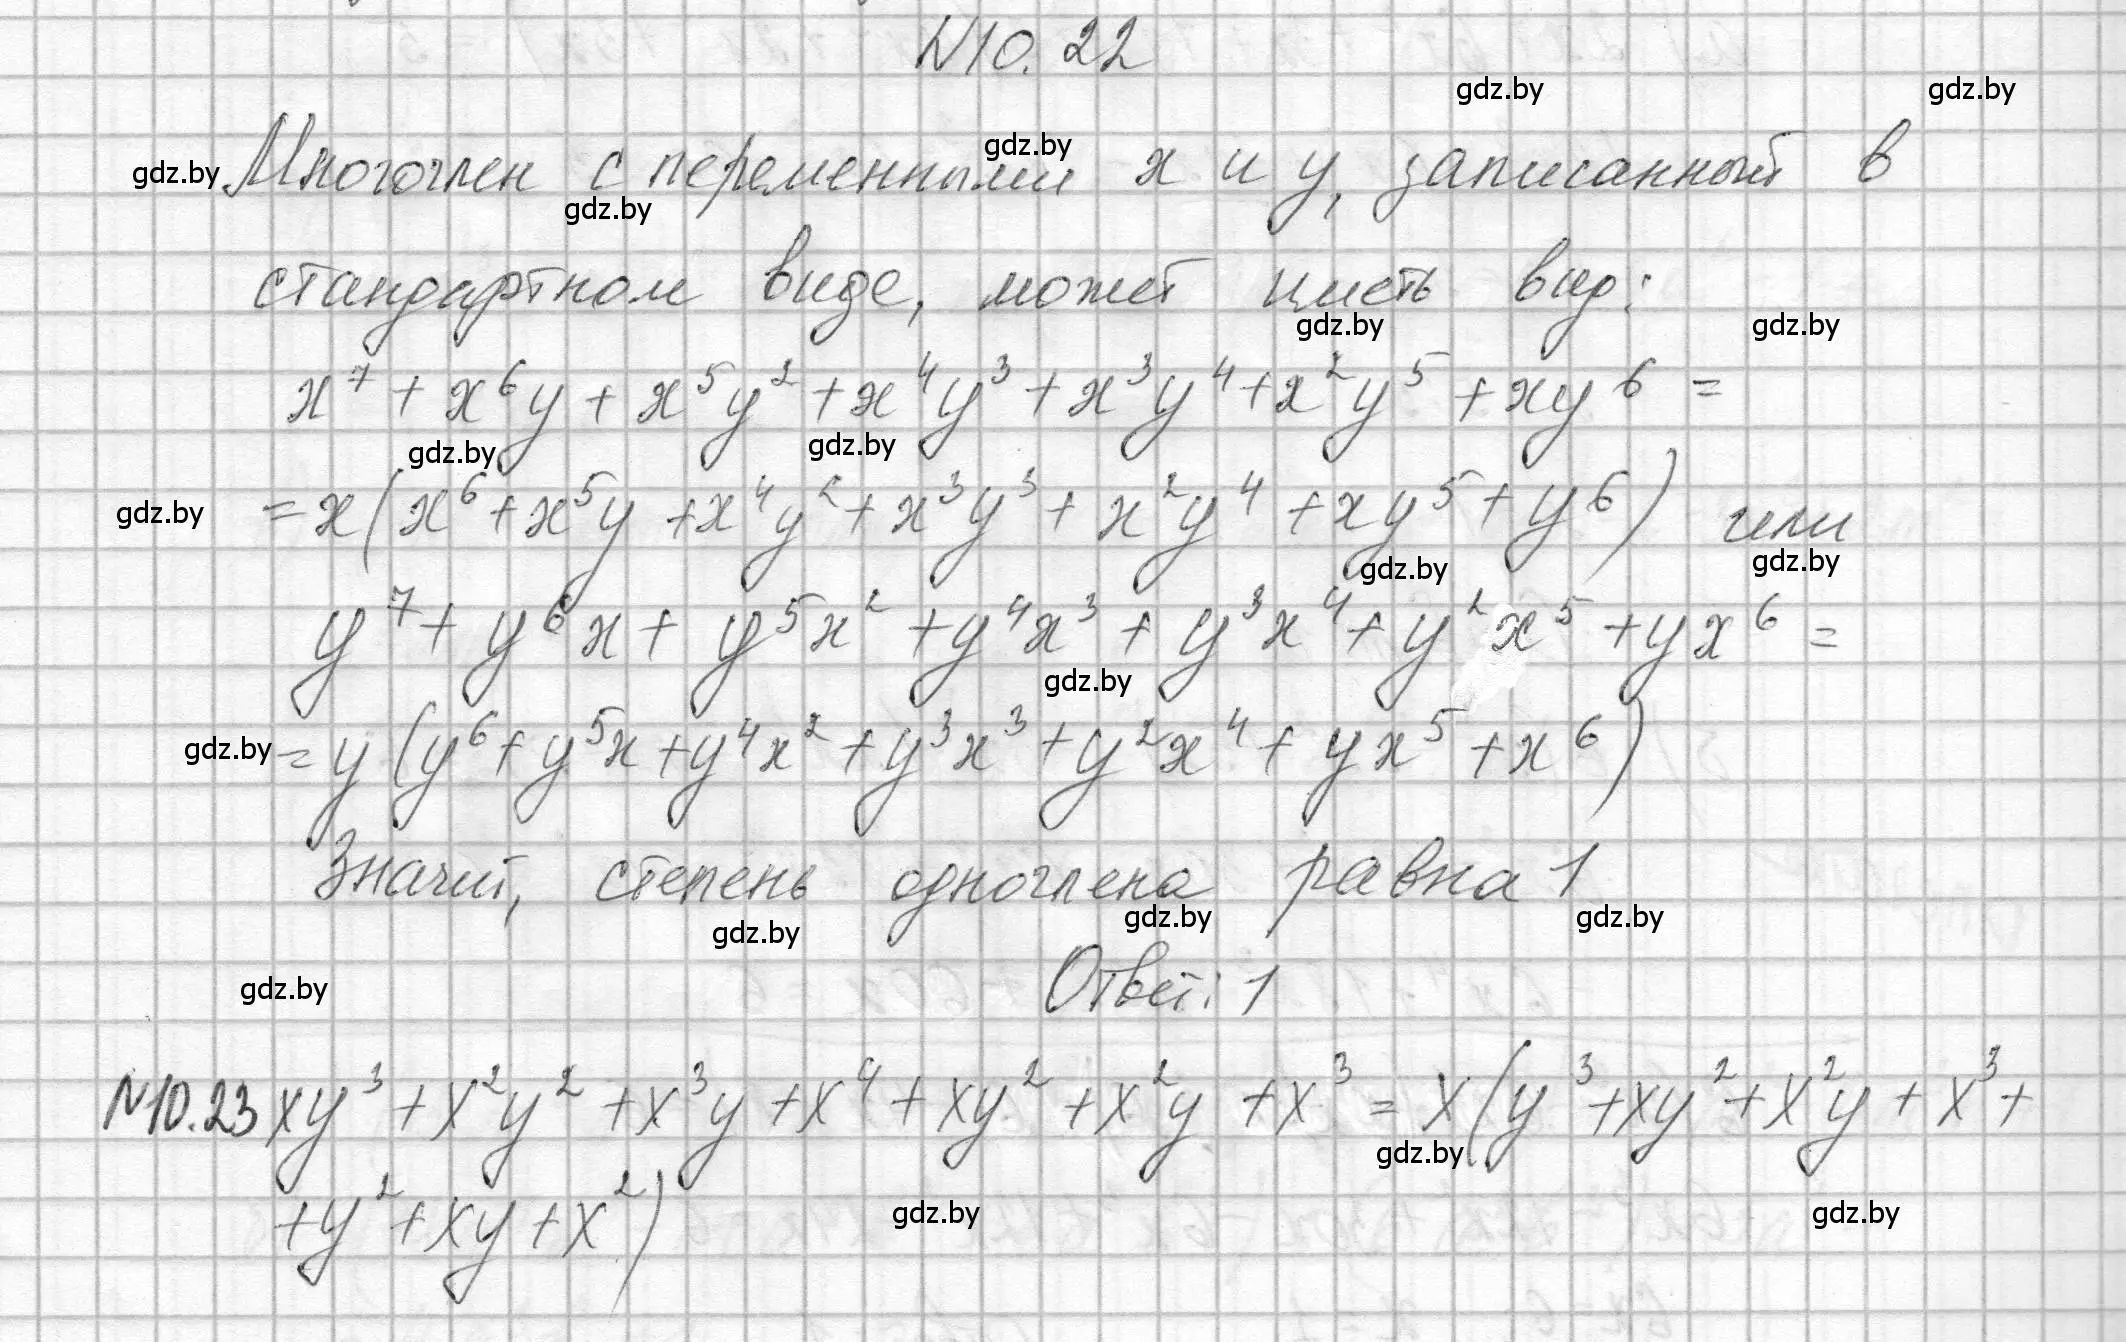 N10.22
gdz.by gdz.by
gdz.by Многочлен с переменными x и y, записанный в
gdz.by
gdz.by
стандартном виде, может иметь вид:
gdz.by gdz.by
x⁷ + x⁶y + x⁵y² + x⁴y³ + x³y⁴ + x²y⁵ + xy⁶ =
gdz.by gdz.by
gdz.by = x(x⁶ + x⁵y + x⁴y² + x³y³ + x²y⁴ + xy⁵ + y⁶) или
gdz.by gdz.by
y⁷ + y⁶x + y⁵x² + y⁴x³ + y³x⁴ + y²x⁵ + yx⁶ =
gdz.by
gdz.by = y(y⁶ + y⁵x + y⁴x² + y³x³ + y²x⁴ + yx⁵ + x⁶)
Значит, степень одночлена равна 1
gdz.by gdz.by gdz.by
gdz.by Ответ: 1
N10.23 xy³ + x²y² + x³y + x⁴ + xy² + x²y + x³ = x(y³ + xy² + x²y + x³ +
gdz.by
+ y² + xy + x²)
gdz.by gdz.by